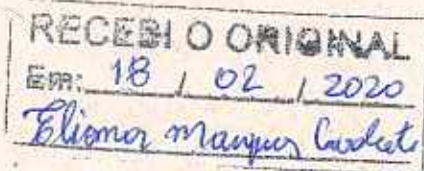 RECEBI O ORIGINAL
Em: 18 / 02 / 2020
Elianor Marques